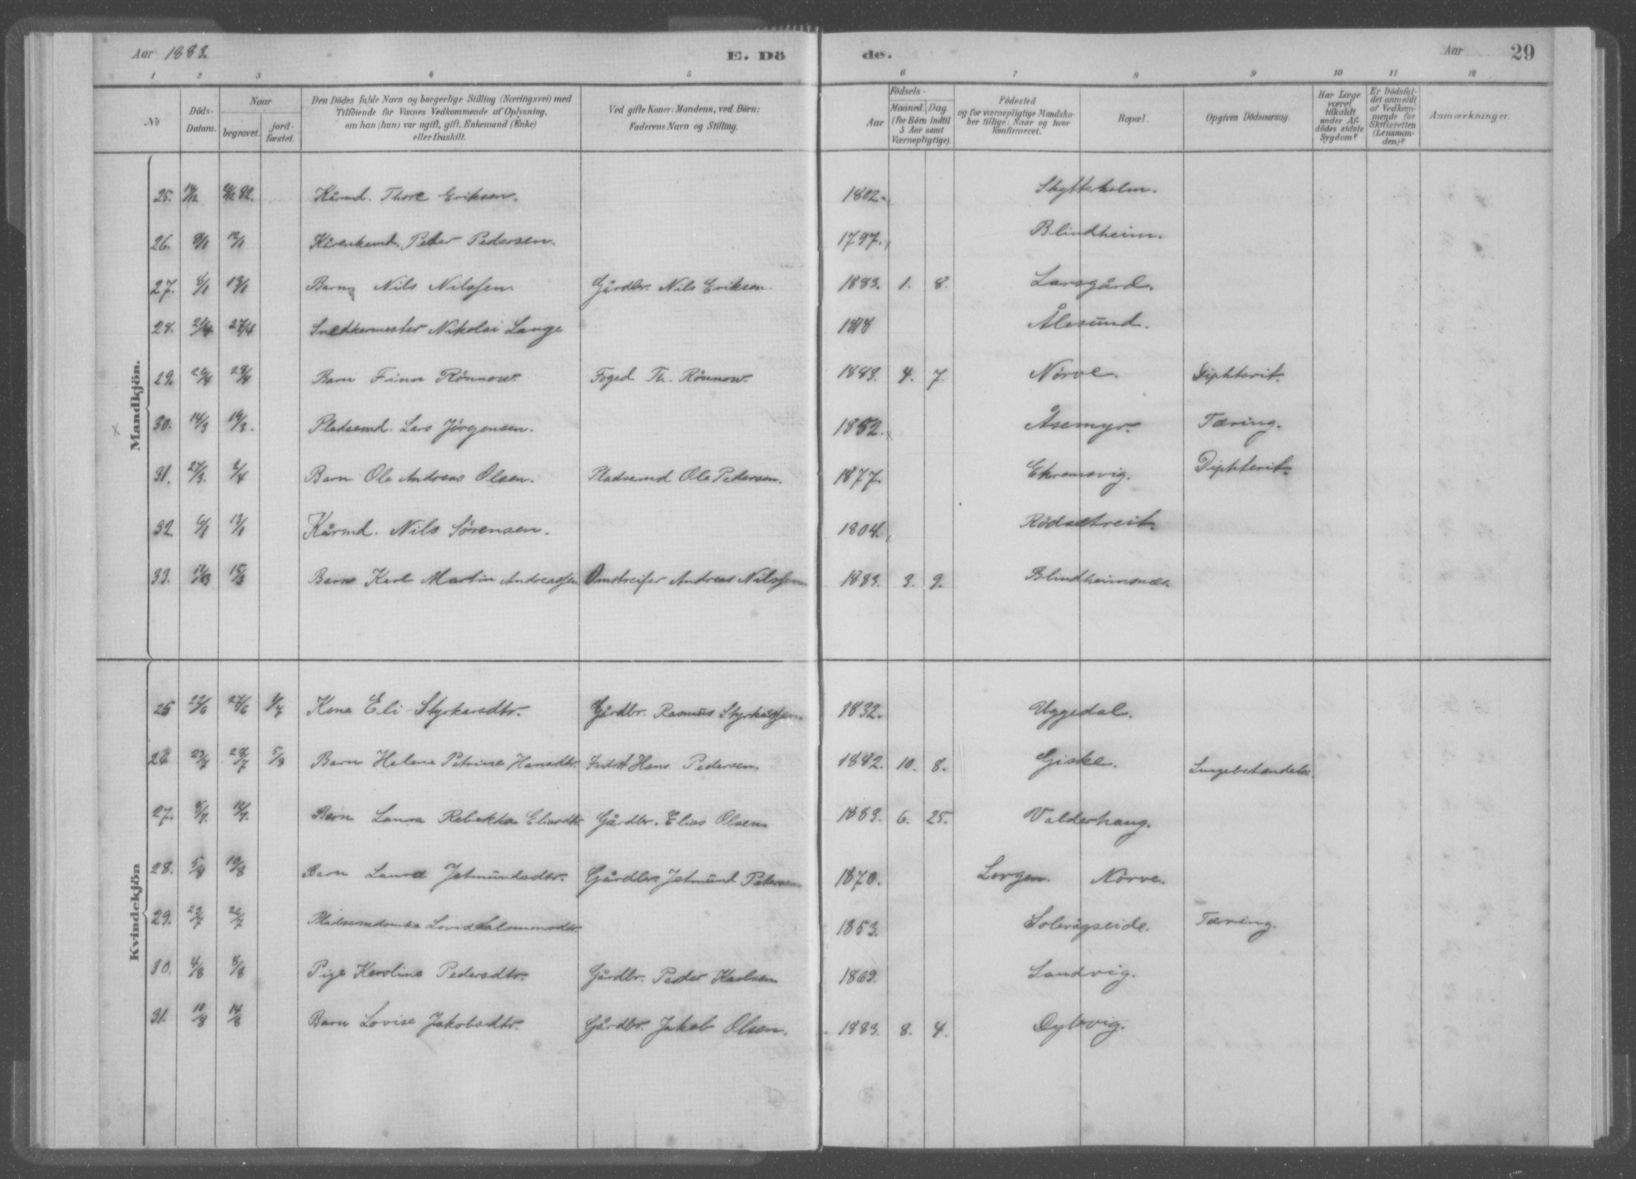 Aar 1882
E. Dö
de.
Aar
29
1 2 3 4 5 6 7 8 9 10 11 12
No
Döds-Datum.
Naar
begravet.
jord-fæstet.
Den Dödes fulde Navn og borgerlige Stilling (Næringsvei) med Tilföiende for Voxnes Vedkommende af Oplysning, om han (hun) var ugift, gift, Enkemand (Enke) eller fraskilt.
Ved gifte Koner: Mandens, ved Börn: Faderens Navn og Stilling.
Födsels-
Aar
Maaned. Dag.
(for Börn indtil 5 Aar samt Værnepligtige)
Födested og for værnepligtige Mandskaber tillige: Naar og hvor konfirmeret.
Bopæl.
Opgiven Dödsaarsag.
Har Læge været tilkaldt under Afdödes sidste Sygdom?
Er Dödsfaldet anmeldt af Vedkommende for Skifteretten (Lensmanden)?
Anmærkninger.
Mandkjön.
25. Kårmd. Thore Eriksen. 1802. Skytterholm.
26. 9/1 13/1 Kårenkemd. Peder Pedersen. 1797. Blindheim.
27. 9/1 13/1 Barn Nils Nilssen Gårdbr. Nils Eriksen 1883. 1. 8. Larsgård.
28. 21/4 27/4 Snedkermester Nikolai Lange 1818 Ålesund.
29. 20/4 28/4 Barn Finn Rönnow. Foged Th. Rönnow. 1883. 4. 7. Nörve. Diphterit.
30. 14/3 19/3. Pladsmd. Lars Jörgensen. 1852. Åsemyr. Tæring.
31. 27/3. 2/4 Barn Ole Andreas Olsen. Pladsemd Ole Pedersen. 1877. Ekremsvig. Diphterit.
32 6/1 13/1 Kårmd. Nils Sörensen. 1804. Rödsætreit.
33. 15/3 Barn Karl Martin Andreassen Omstreifer Andreas Nilssen 1883. 3. 9. Blindheimsnes.
Kvindekjön
25 22/6 27/6 Kone Eli Styrkarsdtr. Gårdbr. Rasmus Styrkarssen. 1832. Uggedal.
26 23/7 28/7 5/8 Barn Helene Petrine Hansdtr. Indst Hans Pedersen. 1882. 10. 8. Giske. Lungebetændelse.
27. 12/7. Barn Laura Rebekka Eliasdtr. Gårdbr. Elias Olsen 1883. 6. 25. Valderhaug.
28. 5/8 10/8 Barn Laura Jetmundsdtr. Gårdbr. Jetmund Petersen 1870. Lorgen. Nörve.
29. 22/7 Pladsemdenke Lovise Salomonsdtr 1853. Solevågseide. Tæring.
30. 4/8 8/8 Pige Karoline Pedersdtr. Gårdbr. Peder Karlsen 1863. Sandvig.
31. 10/8 14/8 Barn Lovise Jakobsdtr. Gårdbr. Jakob Olsen. 1883. 8. 4. Dybvig.